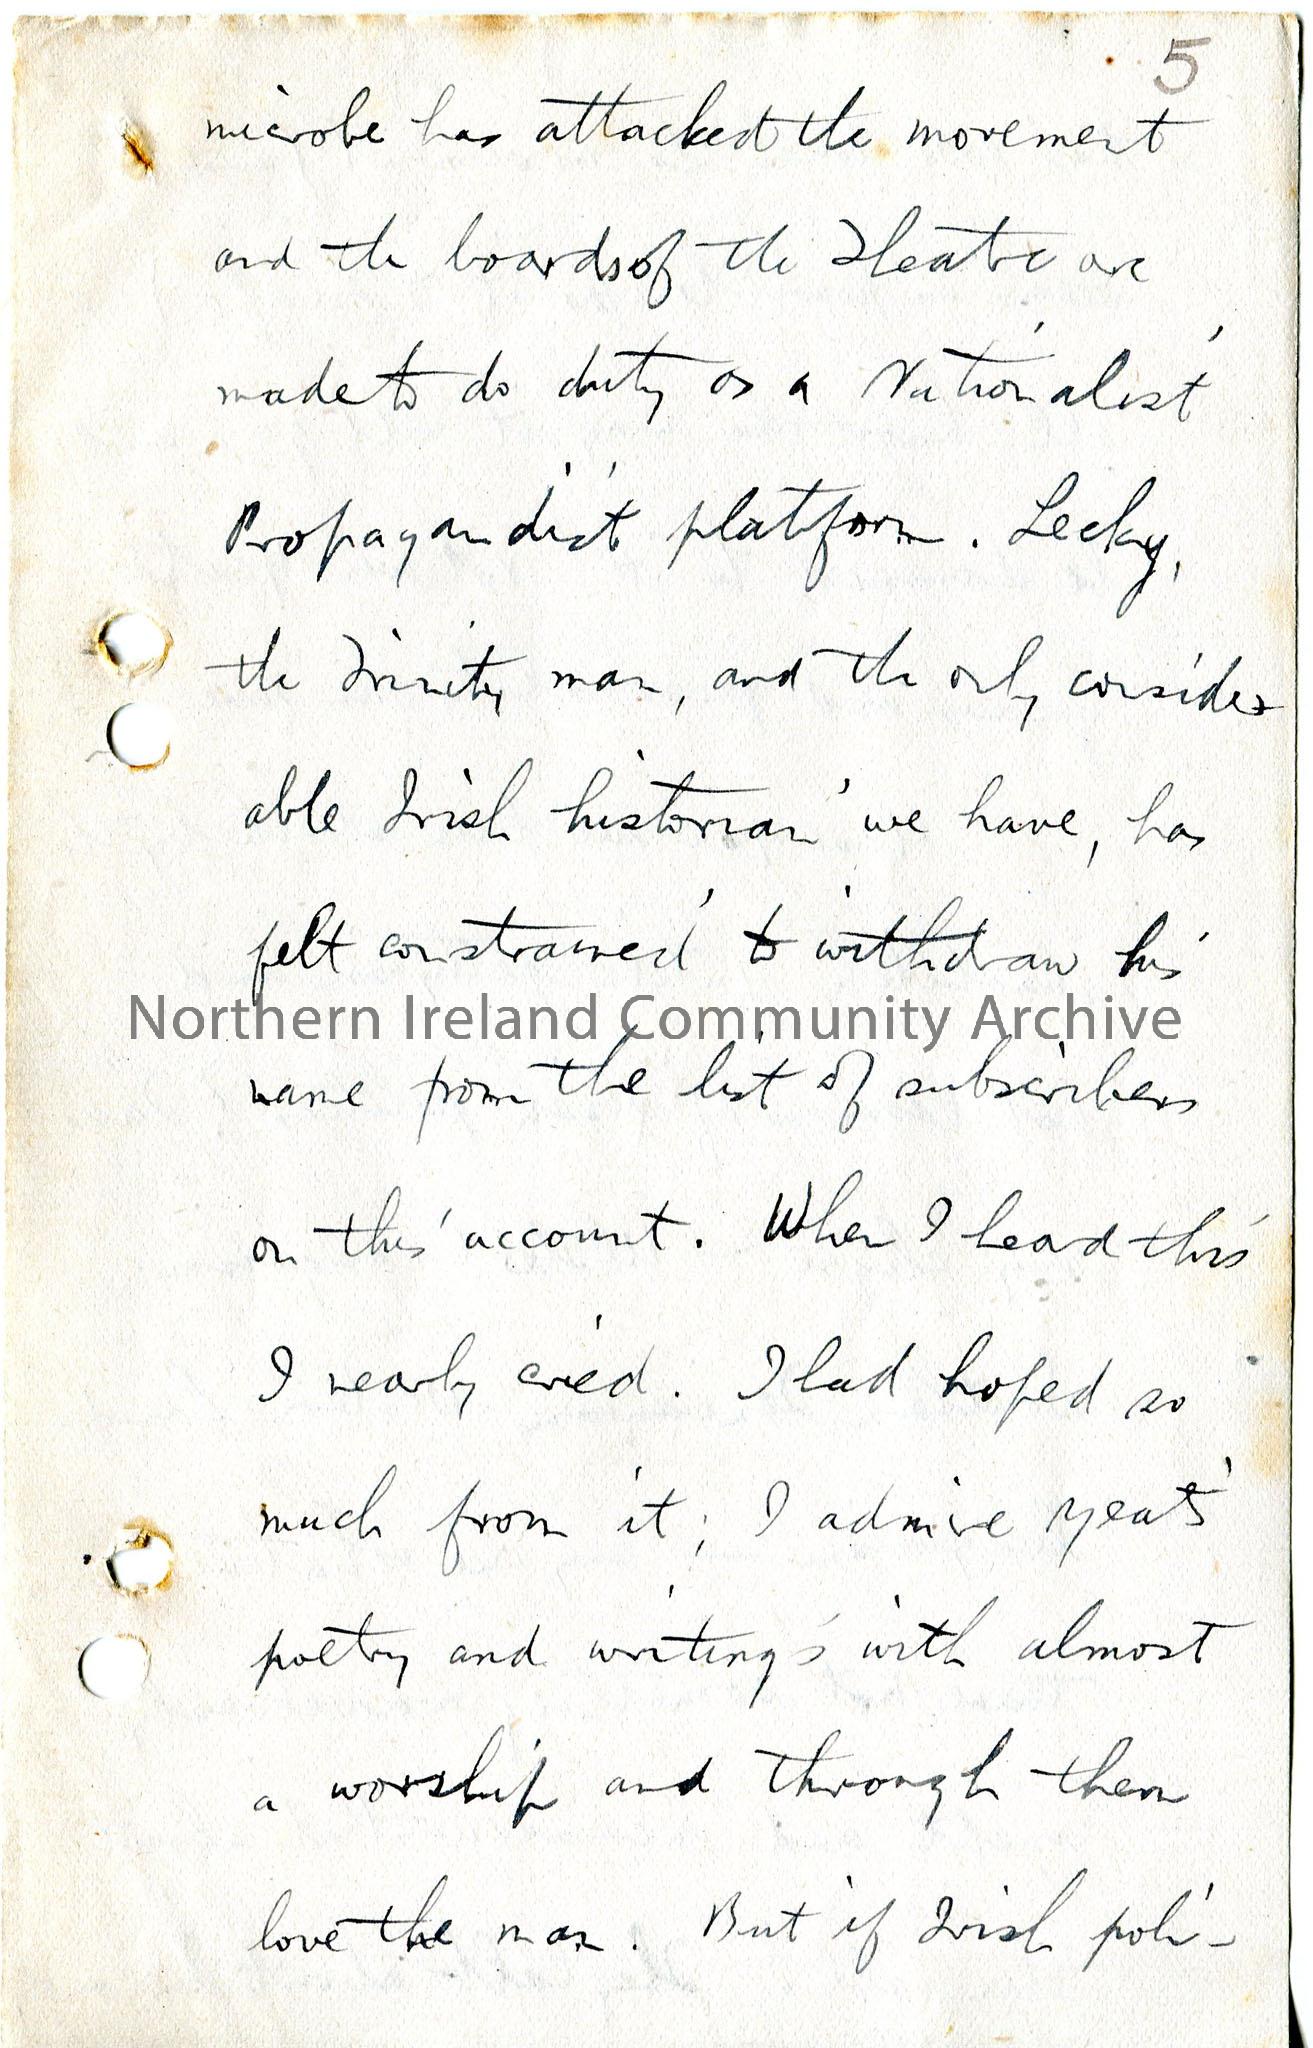 5
microbe has attacked the movement
and the boards of the Theatre are
made to do duty as a Nationalist
Propagandist platform. Lecky,
the Trinity man, and the only consider
able Irish historian we have, has
felt constrained to withdraw his
Northern Ireland Community Archive
name from the list of subscribers
on this account. When I heard this
I nearly cried. I had hoped so
much from it; I admire Yeats'
poetry and writings with almost
a worship and through them
love the man. But if Irish poli-